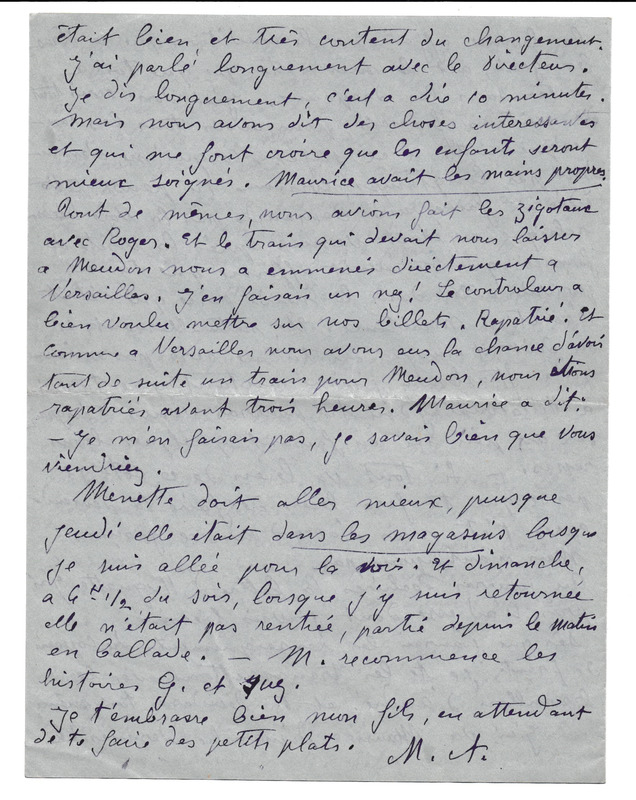 était bien et très content du changement.
J'ai parlé longuement avec le Directeur.
Je dis longuement, c'est a dire 10 minutes.
Mais nous avons dit des choses interessantes
et qui me font croire que les enfants seront
mieux soignés. Maurice avait les mains propres.
Tout de mêmes, nous avions fait les zigotaux
avec Roger. Et le train qui devait nous laisser
a Meudon nous a emmenés directement a
Versailles. J'en faisais un nez! Le controleur a
bien voulu mettre sur nos billets. Rapatrié. Et
comme a Versailles nous avons eu la chance d'avoir
tout de suite un train pour Meudon, nous étions
rapatriés avant trois heures. Maurice a dit:
- Je m'en faisais pas, je savais bien que vous
viendriez.
Menette doit aller mieux, puisque
jeudi elle était dans les magasins lorsque
je suis allée pour la voir. Et dimanche,
a 6 H 1/2 du soir, lorsque j'y suis retournée
elle n'était pas rentrée, partie depuis le matin
en ballade. - M. recommence les
histoires G. et
Je t'embrasse bien mon fils, en attendant
de te faire des petits plats. M. A.